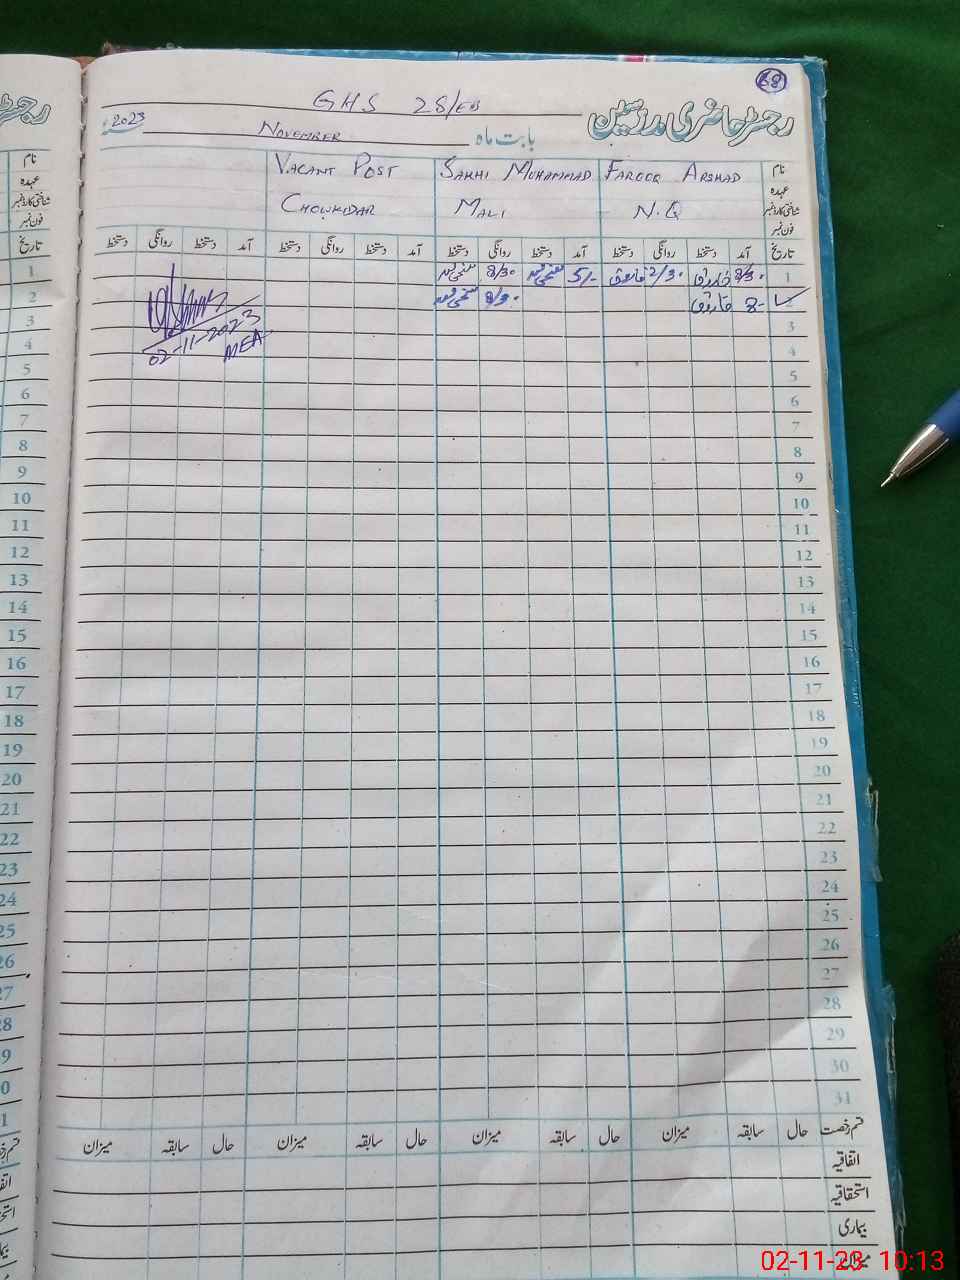 68
GHS 28/EB
رجسٹر حاضری مدرسین
بابت ماہ NOVEMBER 2023
نام FAROOQ ARSHAD SAKHI MUHAMMAD VACANT POST
عہدہ N.Q MALI CHOWKIDAR
شناختی کارڈ نمبر
فون نمبر
تاریخ آمد دستخط روانگی دستخط آمد دستخط روانگی دستخط آمد دستخط روانگی دستخط آمد دستخط روانگی دستخط
1 8/30 فاروق 2/30 فاروق 5/-  8/30
2 8- فاروق 8/30
02-11-2023
MEA
3
4
5
6
7
8
9
10
11
12
13
14
15
16
17
18
19
20
21
22
23
24
25
26
27
28
29
30
31
قسم رخصت حال سابقہ میزان حال سابقہ میزان حال سابقہ میزان حال سابقہ میزان
اتفاقیہ
استحقاقیہ
بیماری
میزان
02-11-23 10:13